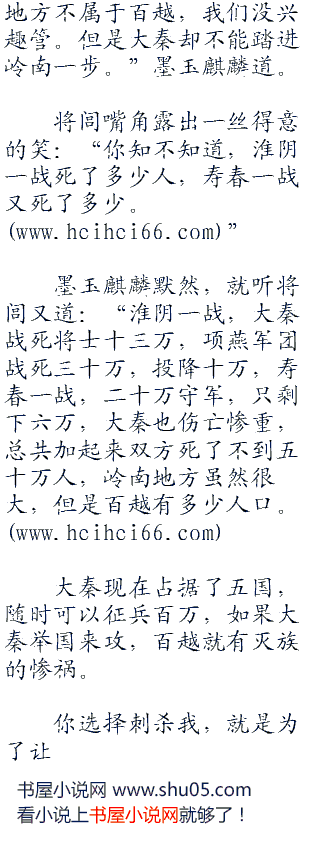 地方不属于百越，我们没兴
趣管。但是大秦却不能踏进
岭南一步。”墨玉麒麟道。
将闾嘴角露出一丝得意
的笑：“你知不知道，淮阴
一战死了多少人，寿春一战
又死了多少。
(www.hcihci66.com)”
墨玉麒麟默然，就听将
闾又道：“淮阴一战，大秦
战死将士十三万，项燕军团
战死三十万，投降十万，寿
春一战，二十万守军，只剩
下六万，大秦也伤亡惨重，
总共加起来双方死了不到五
十万人，岭南地方虽然很
大，但是百越有多少人口。
(www.hcihci66.com)
大秦现在占据了五国，
随时可以征兵百万，如果大
秦举国来攻，百越就有灭族
的惨祸。
你选择刺杀我，就是为
了让
书屋小说网 www.shu05.com
看小说上书屋小说网就够了！